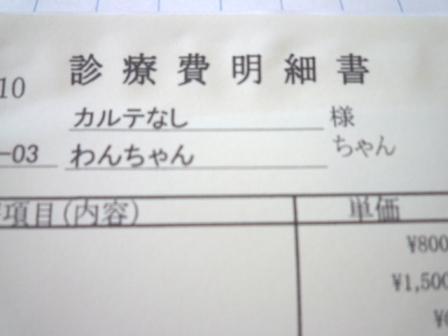 診療費明細書
10
カルテなし 様
-03 わんちゃん ちゃん
項目(内容) 単価
¥800
¥1,500